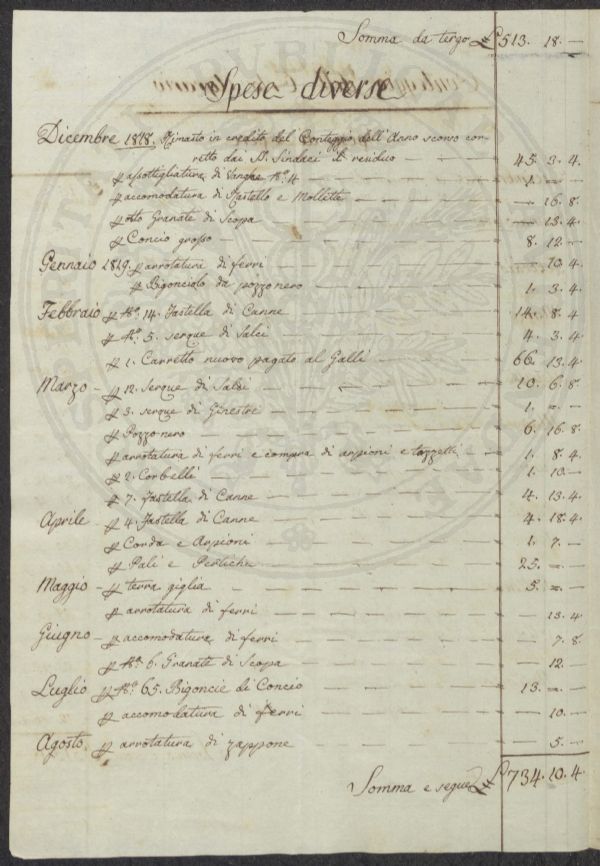 Somma da tergo £ 513. 18. —
Spese diverse
Dicembre 1818. Rimasto in credito del Conteggio dell'Anno scorso cor-
retto dai SS. Sindaci il residuo — 45. 3. 4.
p assottigliatura di Vanghe N.° 4 — 1. — —
p accomodatura di Rastello e Mollette — 16. 8.
p otto Granate di Scopa — 13. 4.
p Concio grosso — 8. 12. —
Gennaio 1819. p arrotatura di ferri — 10. 4
p Bigonciolo da pozzo nero — 1. 3. 4.
Febbraio p N.° 14. Fastella di Canne — 14. 8. 4
p N.° 5. serque di Salci — 4. 3. 4.
p 1. Carretto nuovo pagato al Galli — 66. 13. 4.
Marzo — p 12. Serque di Salci — 10. 6. 8.
p 3. serque di Ginestre — 1. — .
p Pozzo nero — 6. 16. 8.
p arrotatura di ferri e compra di arpioni e tozzetti — 1. 8. 4.
p 2. Corbelli — 1. 10. —
p 7. Fastella di Canne — 4. 13. 4
Aprile — p 4. Fastella di Canne — 4. 18. 4
p Corda e Arpioni — 1. 7. —
p Pali e Pertiche — 25. — .
Maggio — p terra giglia — 5. — .
p arrotatura di ferri — 13. 4
Giugno — p accomodatura di ferri — 7. 8.
p N.° 6. Granate di Scopa — 12. —
Luglio p N.° 65. Bigoncie di Concio — 13. — .
p accomodatura di ferri — 10. —
Agosto p arrotatura di zappone — 5. —
Somma e segue £ 734. 10. 4.